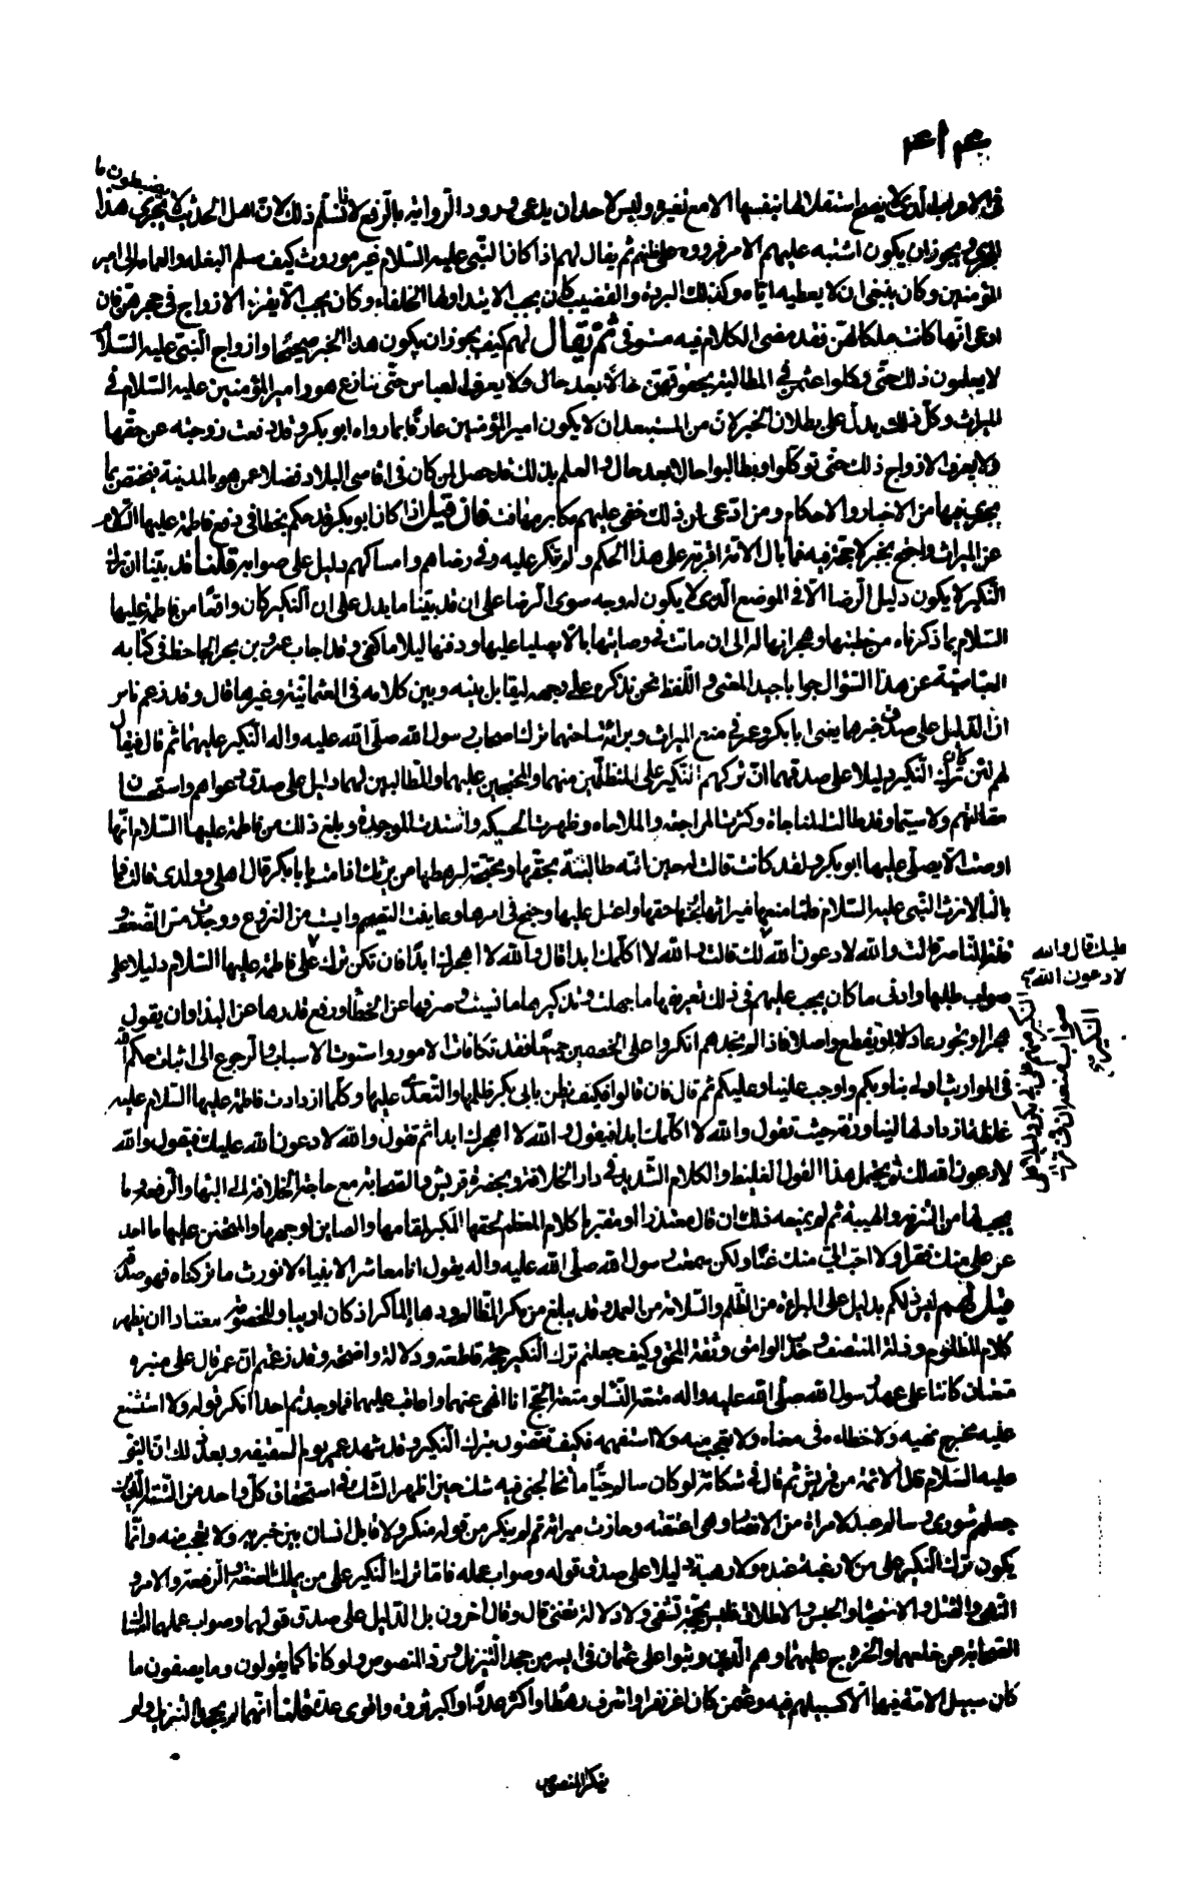 في الاعراب الذي لا يصح استقلالها بنفسها الا مع تغيره وليس لاحد ان يدعي ورود الرواية بالرفع لانا لا نسلم ذلك لان اهل الحديث لا يجري هذا
يضبطون ما
المجرى ويجوز ان يكون اشتبه عليهم الامر فرووه على ظنهم ثم يقال لهم اذا كان النبي عليه السلام غير موروث كيف سلم البغلة والعمامة الى امير
المؤمنين وكان ينبغي ان لا يعطيه اياه وكذلك البردة والقضيب كان يجب الا يتداولها الخلفاء وكان يجب الا يقر الازواج في حجرهن فان
ادعى انها كانت ملكا لهن فقد مضى الكلام فيه مستوفى ثم يقال لهم كيف يجوز ان يكون هذا الخبر صحيحا وازواج النبي عليه السلام
لا يعلمون ذلك حتى وكلوا عثمن في المطالبة بحقوقهن حالا بعد حال ولا يعرفه العباس حتى نازع هو وامير المؤمنين عليه السلام في
الميراث وكل ذلك يدل على بطلان الخبر لان من المستبعد ان لا يكون امير المؤمنين عارفا بما رواه ابو بكر وقد دفعت زوجته عن حقها
ولا يعرف الازواج ذلك حتى توكلوا ويطالبوا حالا بعد حال والعلم بذلك قد حصل لمن كان في اقاصي البلاد فضلا عمن هو بالمدينة ويختص بما
يجري فيها من الاخبار والاحكام ومن ادعى ان ذلك خفي عليهم مكابر مباهت فان قيل اذا كان ابو بكر قد حكم بخطا في دفع فاطمة عليها السلام
عن الميراث واحتج بخبر لا حجة فيه فما بال الامة اقرته على هذا الحكم ولم تنكر عليه وفي رضاهم وامساكهم دليل على صوابه قلنا قد بينا ان ترك
النكير لا يكون دليل الرضا الا في الموضع الذي لا يكون له وجه سوى الرضا على ان قد بينا ما يدل على ان النكير كان واقعا من فاطمة عليها
السلام بما ذكرناه من خطبتها وهجرانها له الى ان ماتت ووصايتها بالا يصليا عليها ودفنها ليلا ما كفى وقد اجاب عمرو بن بحر الجاحظ في كتابه
العباسية عن هذا السؤال جوابا جيد المعنى واللفظ نحن نذكره على وجهه ليقابل بينه وبين كلامه في العثمانية وغيرها قال وقد زعم ناس
ان الدليل على صدق خبرهما يعني ابا بكر وعمر في منع الميراث وبراءة ساحتهما ترك اصحاب رسول الله صلى الله عليه واله النكير عليهما ثم قال فيقال
لهم لئن كان ترك النكير دليلا على صدقهما ان تركهم النكير على المتظلمين منهما والمحتجين عليهما والمطالبين لهما دليل على صدق دعواهم واستحسان
مقالتهم ولا سيما وقد طالت المناجاة وكثرت المراجعة والملاحاة وظهرت الشكية واشتدت الموجدة وبلغ ذلك من فاطمة عليها السلام انها
اوصت الا يصلي عليها ابو بكر ولقد كانت قالت له حين اتته طالبة بحقها ومحتجة لرهطها من يرثك اذا مت يا ابا بكر قال اهلي وولدي قالت فما
بالنا لا نرث النبي عليه السلام فلما منعها ميراثها وبخسها حقها واعتل عليها وجلح في امرها وعاينت التهضم وايست من النزوع ووجدت مس الضعف و
قلة الناصر قالت والله لادعون الله عليك قال والله لادعون الله لك قالت والله لا اكلمك ابدا قال والله لا اهجرك ابدا فان يكن ترك النكير منهم على ابي بكر دليلا على صواب منعه ان في ترك النكير على فاطمة عليها السلام دليلا على
صواب طلبها وادنى ما كان يجب عليهم في ذلك تعريفها ما جهلت وتذكيرها ما نسيت وصرفها عن الخطا ورفع قدرها عن البذا وان يقول
هجرا او يجور عادلا او يقطع واصلا فاذا لم نجدهم انكروا على الخصمين جميعا فقد تكافات الامور واستوت الاسباب والرجوع الى اثبات حكم الله
في المواريث اولى بنا وبكم واوجب علينا وعليكم ثم قال فان قالوا فكيف يظن بابي بكر ظلمها والتعدي عليها وكلما ازدادت فاطمة عليها السلام عليه
غلظة ازداد لها لينا ورقة حيث تقول والله لا اكلمك ابدا فيقول والله لا اهجرك ابدا ثم تقول والله لادعون الله عليك فيقول والله
لادعون الله لك ثم يحتمل هذا القول الغليظ والكلام الشديد في دار الخلافة وبحضرة قريش والصحابة مع حاجة الخلافة الى البهاء والرفعة وما
يجب لها من التنزيه والهيبة ثم لم يمنعه ذلك ان قال معتذرا او متقربا كلام المعظم لحقها المكبر لمقامها والصاين لوجهها والمتحنن عليها ما احد
عز علي منك فقرا ولا احب الي منك غنى ولكن سمعت رسول الله صلى الله عليه واله يقول انا معاشر الانبياء لا نورث ما تركناه فهو صدقة
قيل لهم ليس ذلكم بدليل على البراءة من الظلم والسلامة من العمد وقد يبلغ من مكر الظالم ودهاء الماكر اذ كان اديبا وللخصومة معتادا ان يظهر
كلام المظلوم وذلة المنتصف وحدب الوامق ومقة المحق وكيف جعلتم ترك النكير حجة قاطعة ودلالة واضحة وقد زعمتم ان عمر قال على منبره
متعتان كانتا على عهد رسول الله صلى الله عليه واله متعة النساء ومتعة الحج انا انهى عنهما واعاقب عليهما فما وجدتم احدا انكر قوله ولا استشنع
عليه مخرج نهيه ولا خطاه في معناه ولا تعجب منه ولا استفهمه فكيف تقضون بترك النكير وقد شهد عمر يوم السقيفة وبعد ذلك ان النبي
عليه السلام قال الائمة من قريش ثم قال في شكاته لو كان سالم حيا ما تخالجني فيه شك حين اظهر الشك في استحقاق كل واحد من الستة الذين
جعلهم شورى وسالم عبد لامراة من الانصار وهي اعتقته وحازت ميراثه ثم لم ينكر من قوله منكر ولا قابل انسان بين خبريه ولا تعجب منه وانما
يكون ترك النكير على من لا رغبة عنده ولا رهبة دليلا على صدق قوله وصواب عمله فاما ترك النكير على من يملك الضعة والرفعة والامر و
النهي والقتل والاستحياء والحبس والاطلاق فليس بحجة تشفي ولا دلالة تغني قال وقال اخرون بل الدليل على صدق قولهما وصواب عملهما امساك
الصحابة عن خلعهما والخروج عليهما وهم الذين وثبوا على عثمان في ايسر من جحد التنزيل ورد النصوص ولو كانا كما يقولون وما يصفون ما
كان سبيل الامة فيهما الا كسبيلهم فيه وعثمن كان اعز نفرا واشرف رهطا واكثر عددا واكبر ثروة واقوى عدة قلنا انهما لم يجحدا التنزيل ولم
ينكرا النصوص